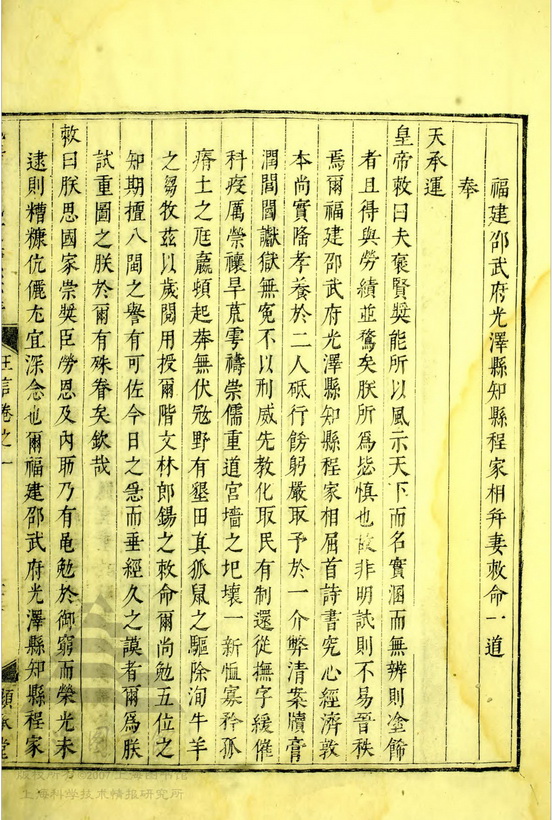 福建邵武府光澤縣知縣程家相并妻敕命一道
奉
天承運
皇帝敕曰夫褒賢奬能所以風示天下而名實溷而無辨則塗飾
者且得與勞績並鶩矣朕所爲毖慎也故非明試則不易晉秩
焉爾福建邵武府光澤縣知縣程家相屈首詩書究心經濟敦
本尚實隆孝養於二人砥行飭躬嚴取予於一介弊清案牘膏
潤閭閻讞獄無冤不以刑威先教化取民有制還從撫字緩催
科疫厲禜禳旱荒雩禱崇儒重道宮墻之圯壞一新恤寡矜孤
瘠土之尫羸頓起莽無伏寇野有墾田真狐鼠之驅除洵牛羊
之芻牧茲以歲閱用授爾階文林郎錫之敕命爾尚勉五位之
知期擅八閩之譽有可佐今日之急而垂經久之謨者爾爲朕
試重圖之朕於爾有殊眷矣欽哉
敕曰朕思國家崇奬臣勞恩及內助乃有黽勉於御窮而榮光未
逮則糟糠伉儷尤宜深念也爾福建邵武府光澤縣知縣程家
王言卷之一